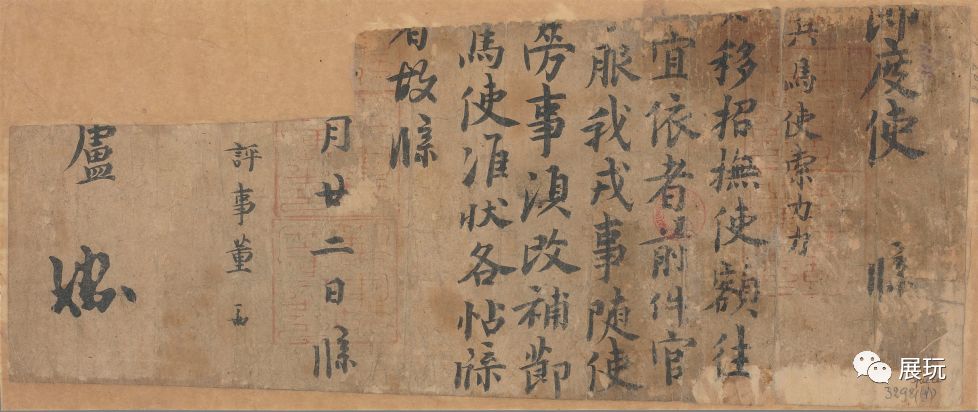 度使 牒
兵馬使索力力
移招撫使額往
宜依者前件官
服我戎事随使
勞事須改補節
馬使准狀各帖牒
者故牒
月廿二日牒
評事董
盧
展玩